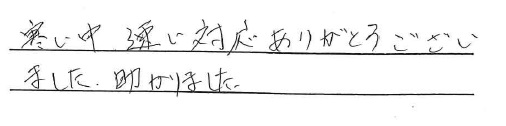 寒い中、速い対応ありがとうござい
ました。助かりました。